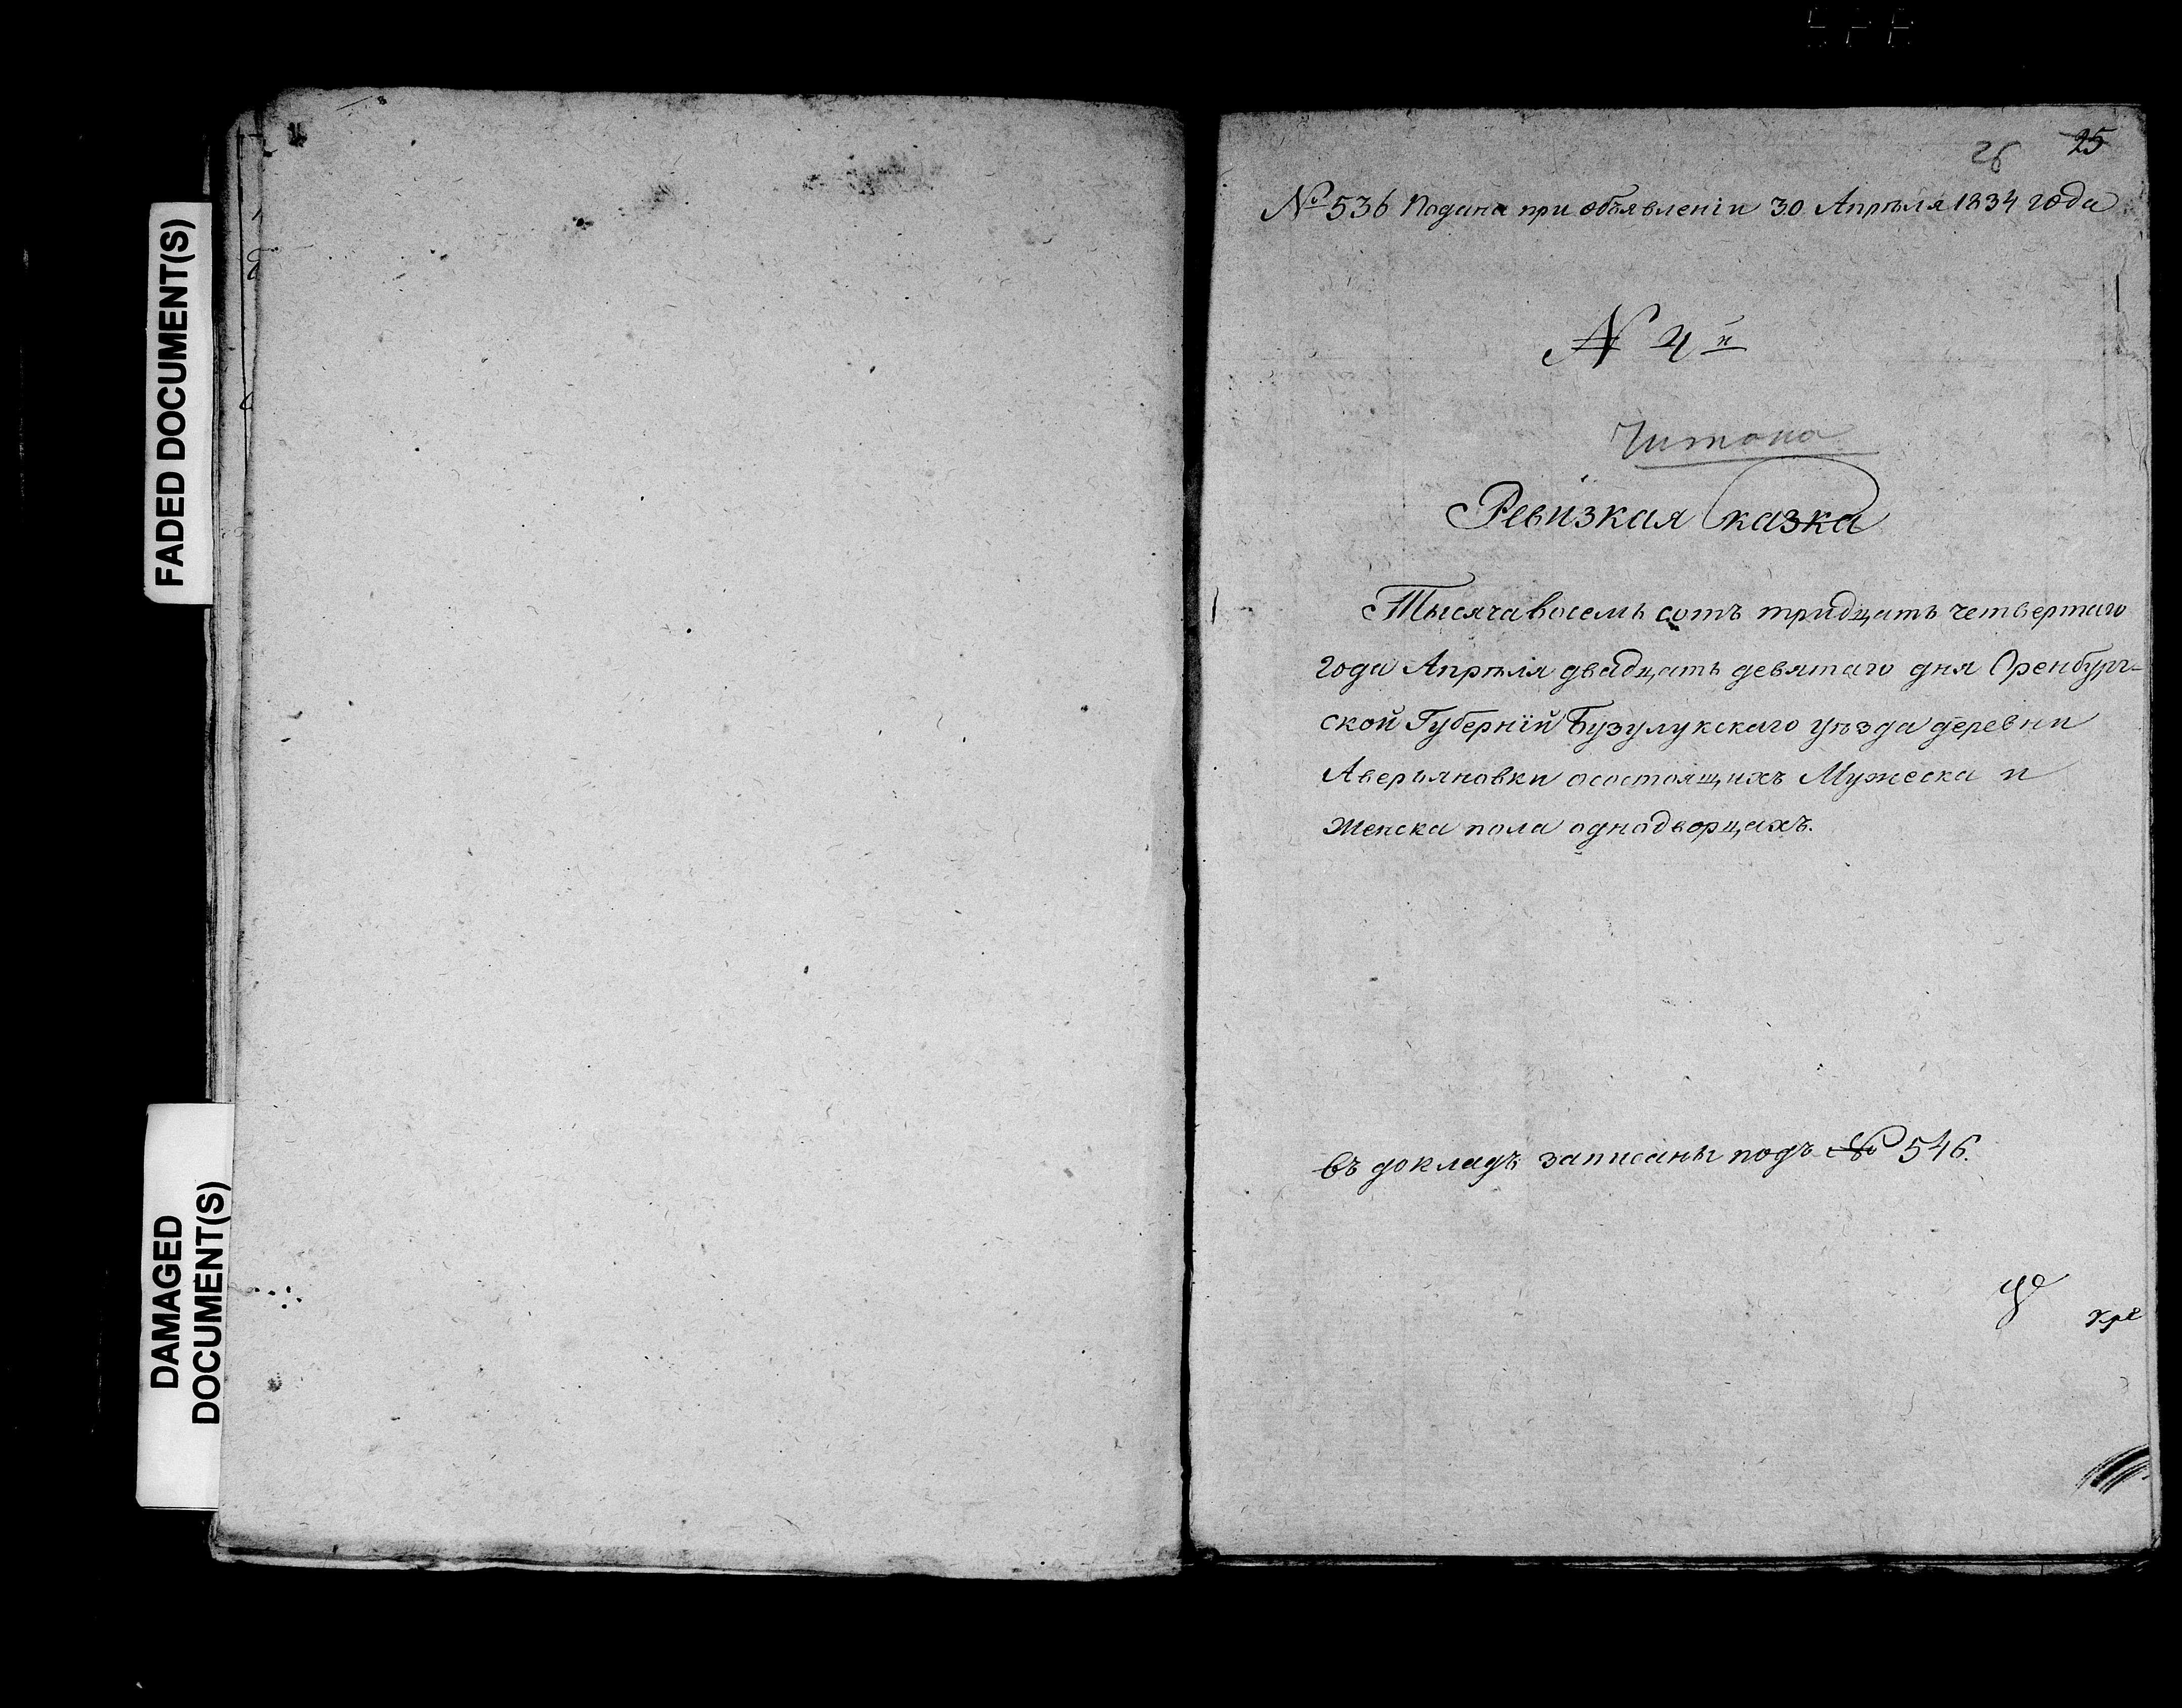 FADED DOCUMENT(S)
DAMAGED
DOCUMENT(S)
26 25
№ 536 Подана при объявленіи 30 Апрѣля 1834 года
N 4й
Читана
Ревизкая Сказка
Тысяча восемь сотъ тридцать четвертаго
года Апрѣля двадцать девятаго дня Оренбург-
ской Губерній Бузулукскаго уѣзда деревни
Аверьяновки осостоящихъ Мужеска и
Женска пола однодворцахъ.
въ докладъ записаны подъ № 546.